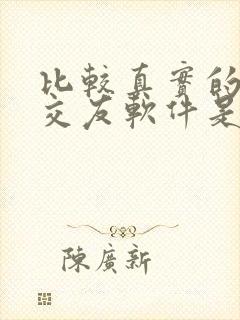 比較真實的
交友軟件是
陳廣新